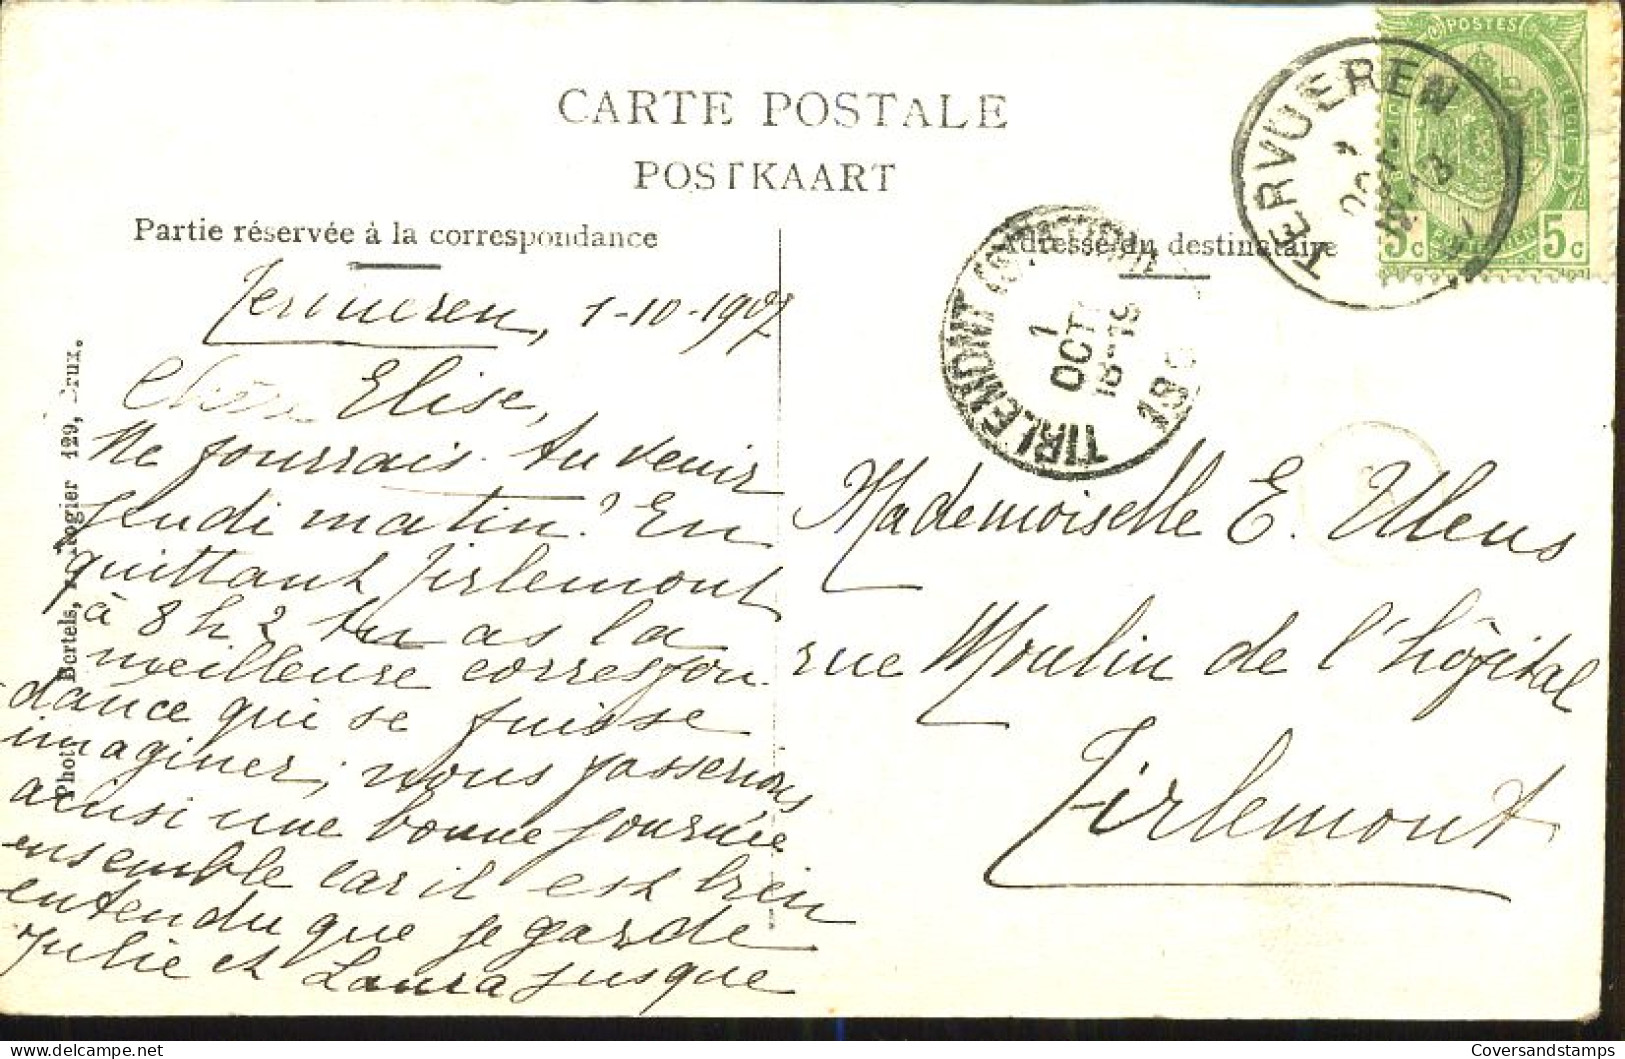 CARTE POSTALE
POSTKAART
Partie réservée à la correspondance
Adresse du destinataire
POSTES
5c 5c
TERVUEREN
1
OCT
TIRLEMONT
1
OCT
18-19
Tervueren, 1-10-1907
Chère Elise,
Ne pourrais-tu venir
jeudi matin? En
quittant Tirlemont
à 8 h 2 tu as la
meilleure correspon-
dance qui se puisse
imaginer; nous passerions
ainsi une bonne journée
ensemble car il est bien
entendu que je garde
Julie et Laura jusque
Mademoiselle E. Ulens
rue Moulin de l'hôpital
Tirlemont
Phot Bertels, Rogier 129, Brux.
Coversandstamps